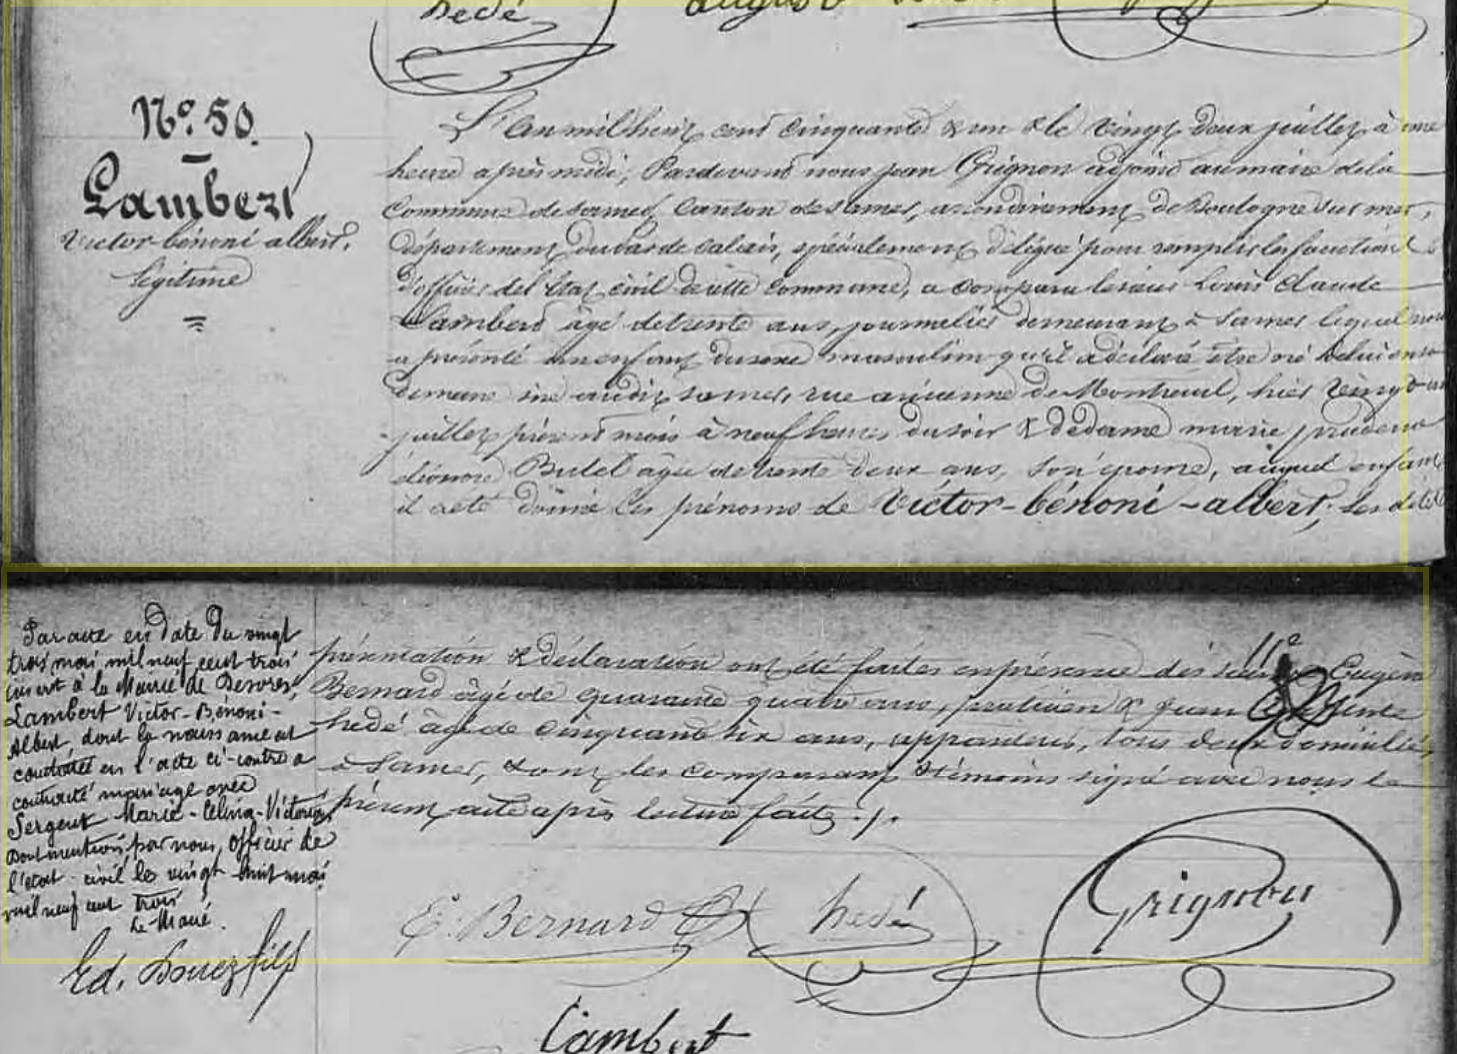 hedé
No. 50.
Lambert
Victor-bénoni albert.
légitime
L'an mil huit cent cinquante & un & le vingt deux juillet à une
heure après midi, Pardevant nous jean Grignon adjoint au maire de la
Commune de samer, Canton de samer, arrondissement de Boulogne sur mer,
département du pas de calais, spécialement délégué pour remplir les fonctions
d'officier de l'état civil de cette commune, a comparu le sieur Louis Claude
Lambert âgé de trente ans, journalier demeurant à samer lequel nous
a présenté un enfant du sexe masculin qu'il a déclaré être né de lui en sa
demeure sise audit samer, rue ancienne de Montreuil, hier vingt-un
juillet présent mois à neuf heures du soir & de dame marie prudence
éléonore Butel âgée de trente deux ans, son épouse, auquel enfant
il a été donné les prénoms de Victor-bénoni-albert, les dites
Par acte en date du vingt
trois mai mil neuf cent trois
inscrit à la Mairie de Desvres,
Lambert Victor-Benoni-
Albert, dont la naissance est
constatée en l'acte ci-contre a
contracté mariage avec
Sergent Marie-Célina-Victorine,
Dont mention par nous, officier de
l'état-civil le vingt-huit mai
mil neuf cent trois
Le Maire.
Ed. fils
11e
présentation & déclaration ont été faites en présence des sieurs Eugène
Bernard âgé de quarante quatre ans, praticien & jean
hedé âgé de cinquante six ans, appariteur, tous deux domiciliés
à Samer, & ont les comparant & témoins signé avec nous le
présent acte après lecture faite ./.
E. Bernard
hedé
Grignon
Lambert